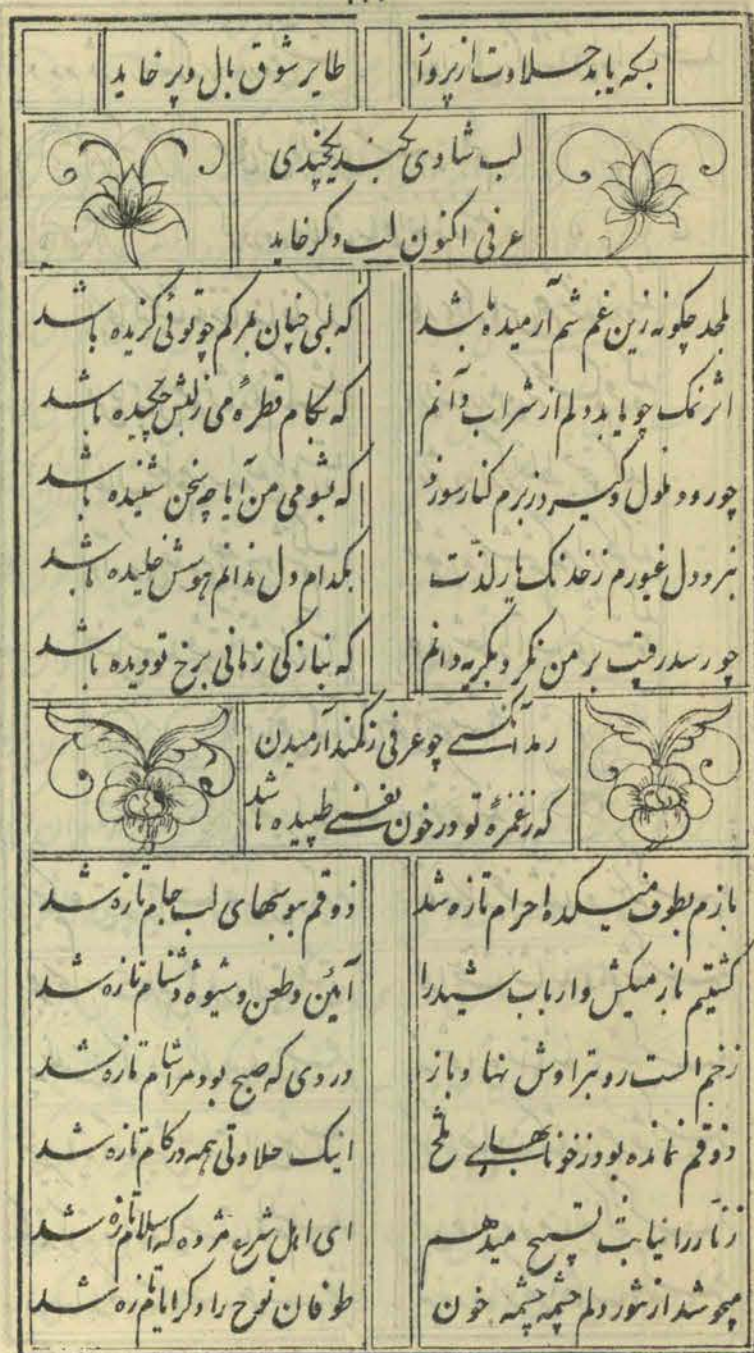 بسکه یابد حلاوت از پرواز طایر شوق بال و پر خاید
لب شادی بخند
عرفی اکنون لب دگر خاید
بلحد چگونه زین غم شم آرمیده باشد که لبی چنان بمرگم چو توئی گزیده باشد
اثر نمک چو یابد دلم از شراب دانم که بکام قطرهٔ می زلبش چکیده باشد
چو رود ملول و گیرد زبرم کنار سوزد که بشومی من آیا چه سخن شنیده باشد
نبرد دل غیورم زخدنک یار لذت بکدام دل ندانم هوسش خلیده باشد
چو رسد رقیب بر من نگرد بگریه دانم که بنازکی زمانی برخ تو دیده باشد
رمد آنکسی چو عرفی زکمند آرمیدن
که زغمزهٔ تو در خون نفسی طپیده باشد
بازم بطوف میکده احرام تازه شد ذوقم ببوسهای لب جام تازه شد
گشتیم باز میکش و ارباب شید را آئین و طعن و شیوهٔ دشنام تازه شد
زخم الست رو بتراوش نهاد باز دردی که صبح بود مرا شام تازه شد
ذوقم نمانده بود زخونابهای تلخ اینک حلاوتی همه در کام تازه شد
زنار را نیابت تسبیح میدهم ای اهل شرع مژده که اسلام تازه شد
میجوشد از شور دلم چشمه چشمه خون طوفان نوح را دگر ایام تازه شد